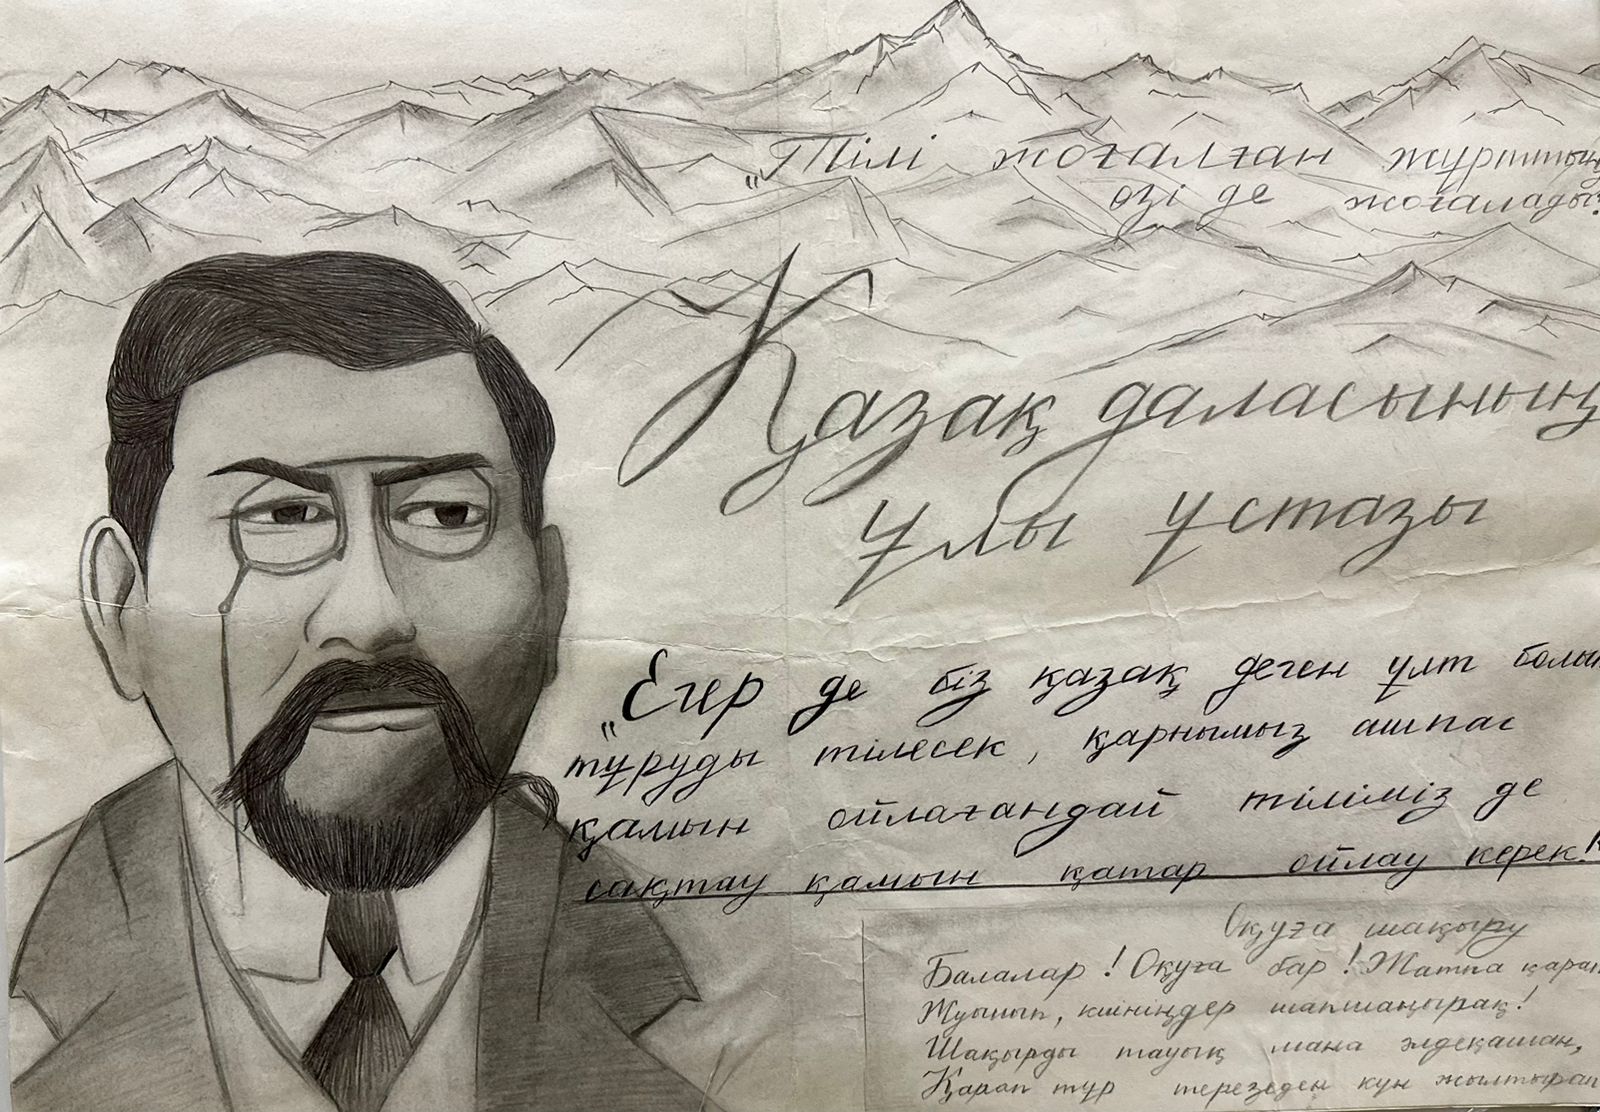 „Тілі жоғалған жұрттың
өзі де жоғалады"
Қазақ даласының
ұлы ұстазы
„Егер де біз қазақ деген ұлт болып
тұруды тілесек, қарнымыз ашпас
қамын ойлағандай тіліміз де
сақтау қамын қатар ойлау керек."
Оқуға шақыру
Балалар! Оқуға бар! Жатпа қарап
Жуынып, киініңдер шапшаңырақ!
Шақырды тауық мана әлдеқашан,
Қарап тұр терезеден күн жылтырап